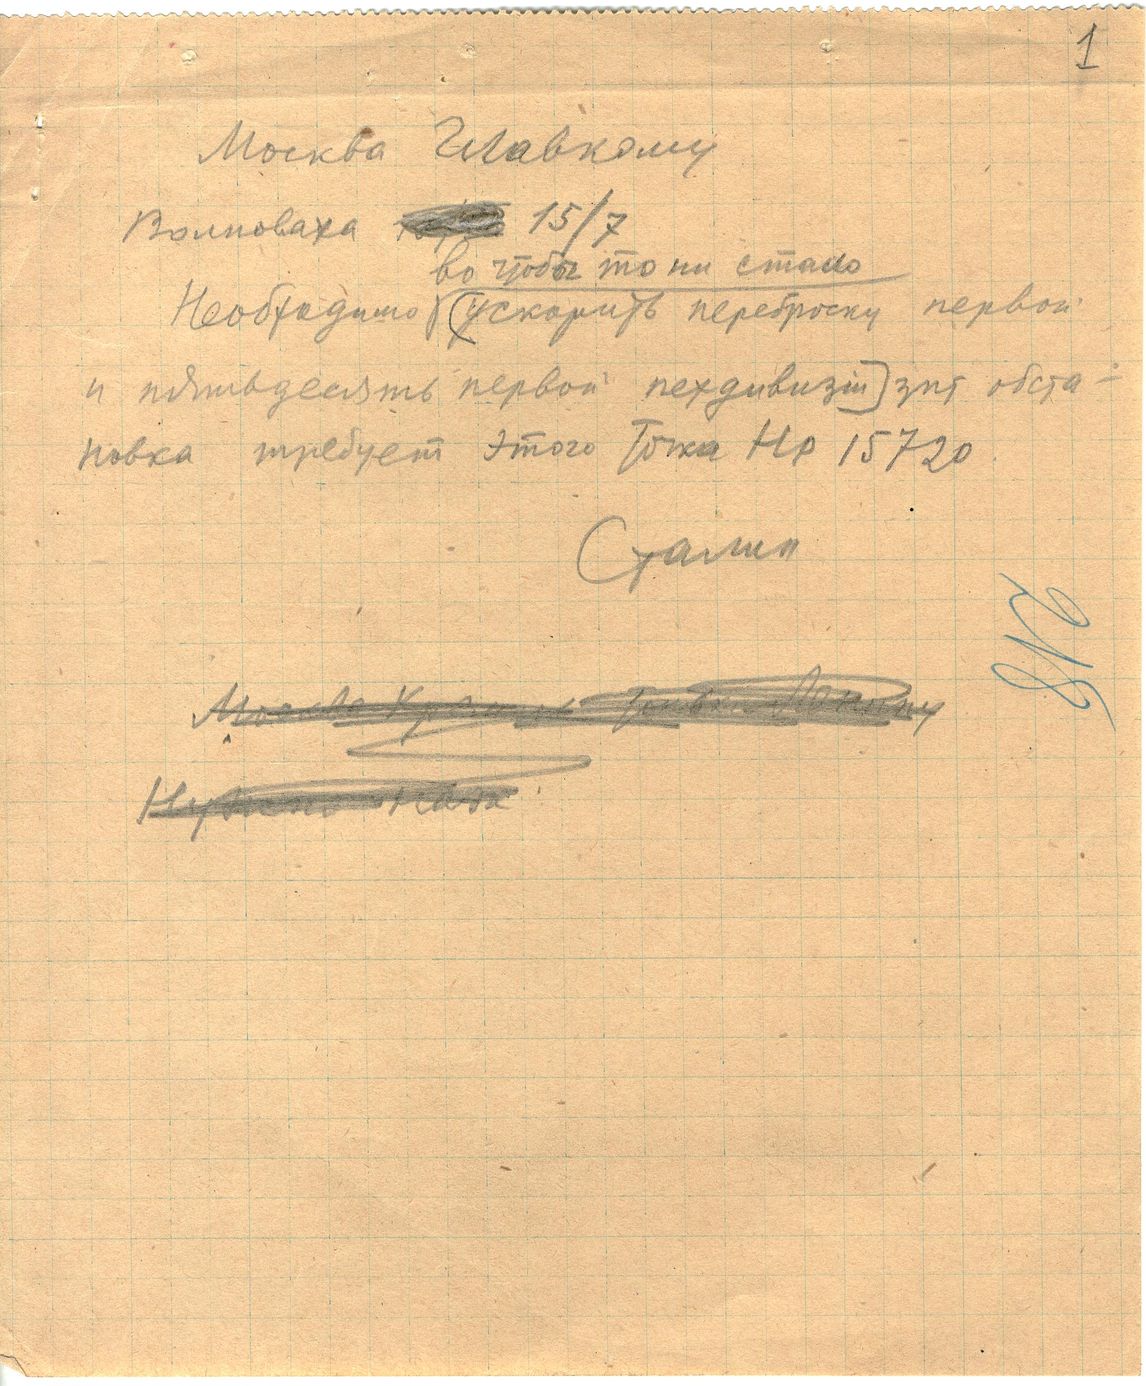 1
Москва Главкому
Волноваха 15/7
во чтобы то ни стало
Необходимо (ускорить переброску первой
и пятьдесять первой пехдивизии] зпт обста-
новка требует этого Точка Нр 15720
Сталин
Москва
Нужно